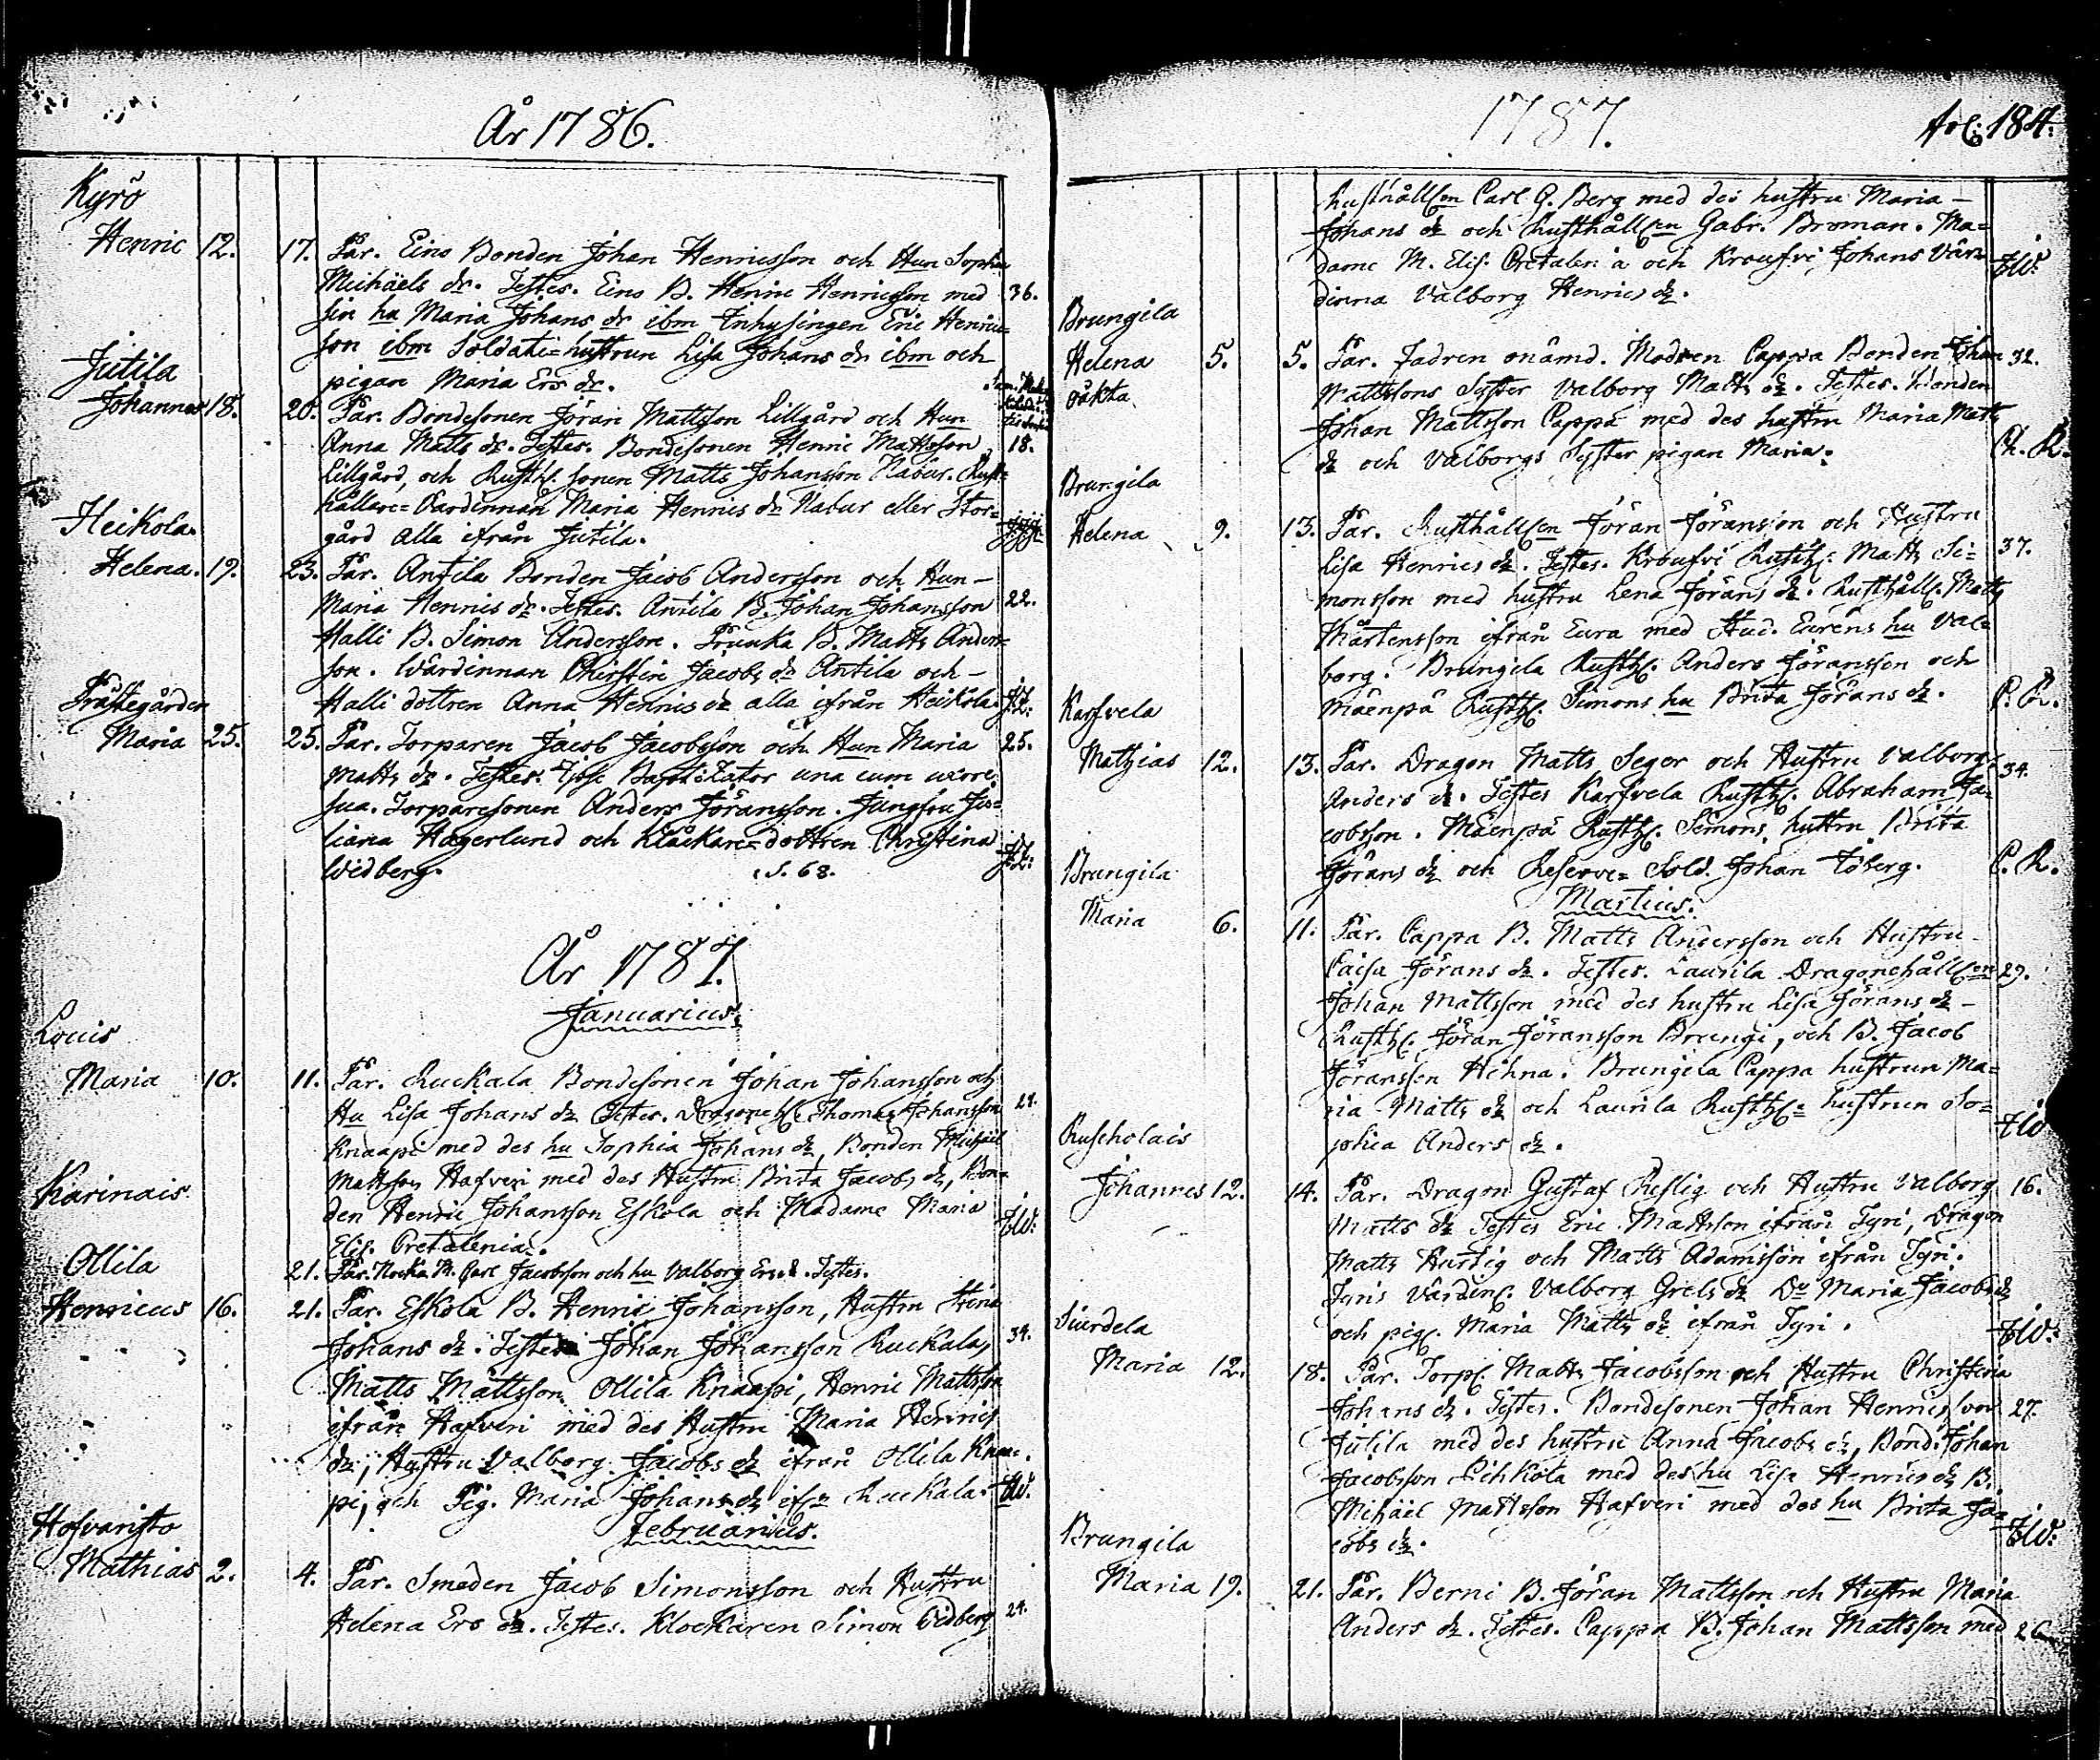 År 1786.
Kyrö
Henric 12. 17. Par. Eino Bonden Johan Henricsson och Hun Sophia
Michäels dr. Testes. Eino B. Henric Henricsson med 36.
sin hu Maria Johans dr ibm Inhysingen Eric Henrics=
son ibm Soldate=hustrun Lisa Johans dr ibm och
pigan Maria Ers dr.
Jutila
Johannes 18. 20. Par. Bondesonen Jöran Mattsson Lillgård och Hun
Anna Matts dr. Testes. Bondesonen Henric Mattsson 18.
Lillgård, och Rusth. sonen Matts Johansson Nabur. Rust=
hållare=Värdinnan Maria Henrics dr Nabur eller Stor=
gård alla ifrån Jutila.
Heikola.
Helena. 19. 23. Par. Antila Bonden Jacob Andersson och Hun
Maria Henrics dr. Testes. Antila B. Johan Johansson 22.
Halli B. Simon Andersson. Prunka B. Matts Anders=
son. Wärdinnan Christin Jacobs dr Antila och
Halli dottren Anna Henrics dr alla ifrån Heikola.
Prästegården
Maria 25. 25. Par. Torparen Jacob Jacobsson och Hun Maria 25.
Matts dr. Testes. Ipse Baptizator una cum uxore
sua. Torparesonen Anders Jöransson. Jungfru Ju=
liana Hagerlund och Klåckare=dottren Christina
Widberg. S. 68.
År 1787.
Januarius.
Louis
Maria 10. 11. Par. Ruckala Bondesonen Johan Johansson och
Hu Lisa Johans dr Testes. Dragoneh. Thomas Johansson 24.
Knaapi med des hu Sophia Johans dr, Bonden Michäel
Mattsson Hafveri med des Hustru Brita Jacobs dr, Bon=
den Henric Johansson Eskola och Madame Maria
Elis. Cretalenia.
Karinais
21. Par. Nocka M. Carl Jacobsson och hu Valborg Ers dr. Testes.
Ollila
Henricus 16. 21. Par. Eskola B. Henric Johansson, Hustru Stina
Johans dr. Testes Johan Johansson Ruckala, 34.
Matts Mattsson Ollila Knaapi, Henric Mattsson
ifrån Hafveri med des Hustru Maria Henrics
dr, Hustru Valborg Jacobs dr ifrån Ollila Knaa=
pi, och Pig. Maria Johans dr ifrn Ruckala.
Februarius.
Hofvaristo
Mathias 2. 4. Par. Smeden Jacob Simonsson och Hustru
Helena Ers dr. Testes. Klockaren Simon Vidberg 24.
1787. Fol: 184.
Rusthållen Carl G. Berg med des hustru Maria
Johans dr och Rusthållen Gabr. Broman. Ma=
dame M. Elis. Cretalenia och Kroufvi Johans Vär=
dinna Valborg Henrics dr.
Brungila
Helena 5. 5. Par. Fadren onämd. Modren Cappa Bonden Johan 32.
oäkta Mattssons Syster Valborg Matts dr. Testes. Bonden
Johan Mattsson Cappa med des hustru Maria Matts
dr och Valborgs Syster pigan Maria.
Brungila
Helena 9. 13. Par. Rusthållen Jöran Jöransson och Hustru
Lisa Henrics dr. Testes. Kroufvi Rusth. Matts Si= 37.
monsson med hustru Lena Jörans dr. Rusthåll. Matts
Mårtensson ifrån Eura med Stud. Eurens hu Val=
borg. Brungila Rusth. Anders Jöransson och
Mäenpä Rusth. Simons hu Brita Jörans dr. C. R.
Karfvela
Mathias 12. 13. Par. Dragon Matts Seger och Hustru Valborg 34.
Anders dr. Testes Karfvela Rusth. Abraham Ja=
cobsson. Mäenpä Rusth. Simons hustru Brita
Jörans dr och Reserve=Sold. Johan Töberg. C. R.
Martius.
Brungila
Maria 6. 11. Par. Cappa B. Matts Andersson och Hustru
Caisa Jörans dr. Testes. Laurila Dragonehållen 29.
Johan Mattsson med des hustru Lisa Jörans dr
Rusth. Jöran Jöransson Brungi, och B. Jacob
Jöransson Hihna. Brungila Cappa hustrun Ma=
ria Matts dr och Laurila Rusth. hustrun So=
phia Anders dr.
Ruskolais
Johannes 12. 14. Par. Dragon Gustaf Reslig och Hustru Valborg 16.
Matts dr Testes Eric Mattsson ifrån Tyri, Dragon
Matts Hurtig och Matts Adamsson ifrån Tyri.
Tyris Värdin. Valborg Grels dr Do Maria Jacobs dr
och pig. Maria Matts dr ifrån Tyri.
Siurdela
Maria 12. 18. Par. Torp. Matts Jacobsson och Hustru Christina
Johans dr. Testes. Bondesonen Johan Henricsson 27.
Jutila med des hustru Anna Jacobs dr, Bond. Johan
Jacobsson med des hu Lisa Henrics dr B.
Michäel Mattsson Hafveri med des hu Brita Ja=
cobs dr.
Brungila
Maria 19. 21. Par. Berni B. Jöran Mattsson och Hustru Maria
Anders dr. Testes. Cappa B. Johan Mattsson med 26